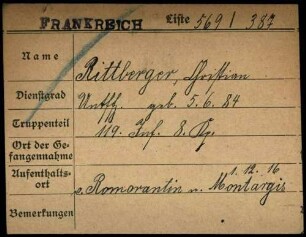 FRANKREICH Liste 569 / 387
Name Rittberger, Christian
Dienstgrad Untffz. geb. 5.6.84
Truppenteil 119. Inf. 8. Kp.
Ort der Gefangennahme
Aufenthaltsort 1.12.16
v. Romorantin n. Montargis
Bemerkungen